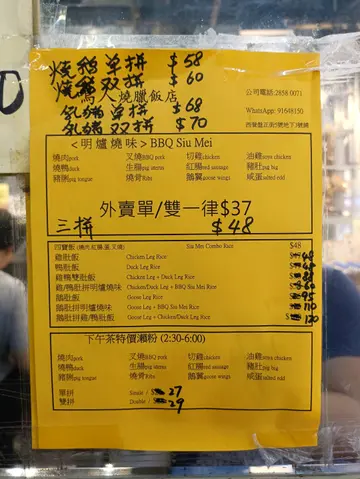 燒鵝单拼 $58
燒鵝双拼 $60
為人燒臘飯店
公司電話:2858 0071
乳豬单拼 $68
WhatsApp: 91648150
乳豬双拼 $70
<明爐燒味>BBQ Siu Mei
燒肉pork 叉燒BBQ pork 切雞chicken 油雞
燒鴨duck 生腸pig uterus 紅腸red sausage 豬肚pig big
豬脷pig tongue 燒骨Ribs 鵝翼goose wings 咸蛋salted
外賣單/雙一律$37
三拼 $48
四寶飯(燒肉紅腸,蛋,叉燒) Siu Mei Combo Rice $48
雞肶飯 Chicken Leg Rice 48
鴨肶飯 Duck Leg Rice
雞鴨雙肶飯 Chicken Leg + Duck Leg Rice
雞/鴨肶拼明爐燒味 Chicken/Duck Leg + BBQ Siu Mei Rice
鵝肶飯 Goose Leg Rice 95
鵝肶拼明爐燒味 Goose Leg + BBQ Siu Mei Rice 110
鵝肶拼雞/鴨肶飯 Goose Leg + Chicken/Duck Leg Rice 120
下午茶特價瀨粉 (2:30-6:00)
燒肉pork 叉燒BBQ pork 切雞chicken 油雞
燒鴨duck 生腸pig uterus 紅腸red sausage 豬肚pig big
豬脷pig tongue 燒骨Ribs 鵝翼goose wings 咸蛋salted
單拼 27
雙拼 Double / 29